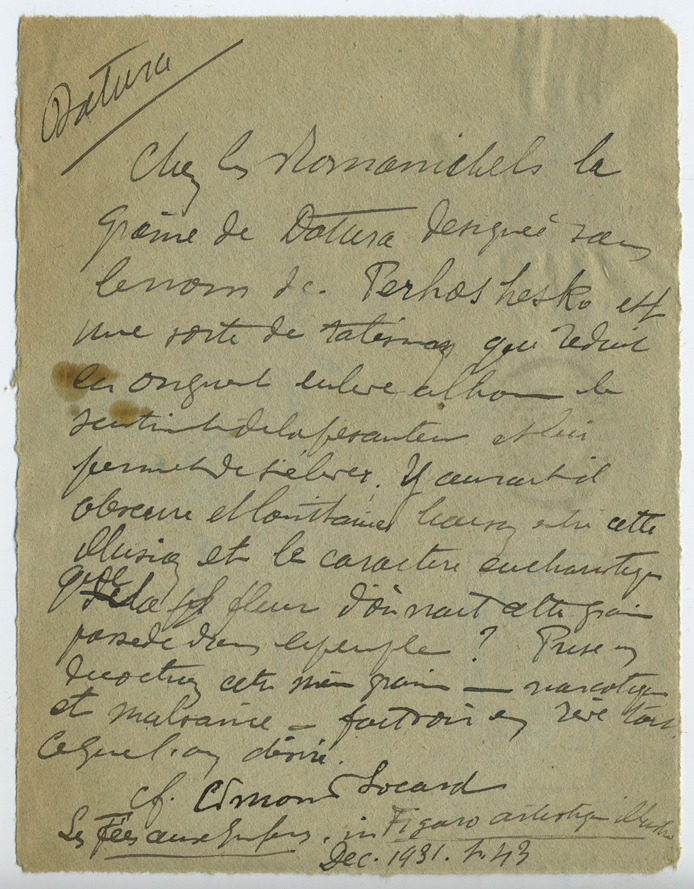 Datura
Chez les Romanichels la
graine de Datura designée sous
le nom de Perhosheskro est
une sorte de talisman qui reduit
en onguent enleve a l'homme le
sentiment de la pesanteur et lui
permet de s'élever. Y aurait-il
obscure et lointaine liaison entre cette
illusion et le caractère eucharistique
que la fleur d'où nait cette graine
possede dans le peuple ? Prise en
decoction cette même graine — narcotique
et malsaine — fait voir en rêve tout
ce que l'on désire.
cf. Edmond Locard
Les Fées aux Enfers. in Figaro artistique illustré
Dec. 1931. p. 43